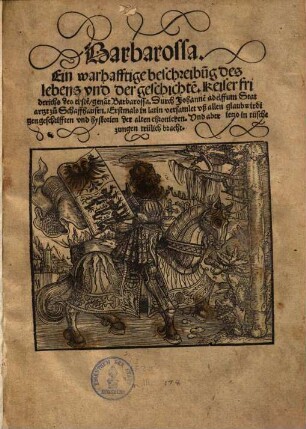 Barbarossa.
Ein warhafftige beschreibūg des
lebens vnd der geschichtē Keiser fri
derichs des ersten/genāt Barbarossa. Durch Johannē adelffum Stat
artzt zů Schaffhausen. Erstmals in latin versamlet vß allen glaubwirdi
gen geschrifften vnd hystorien der alten chronicken. Vnd aber ietzo in tütsche
zungen trülich bracht.